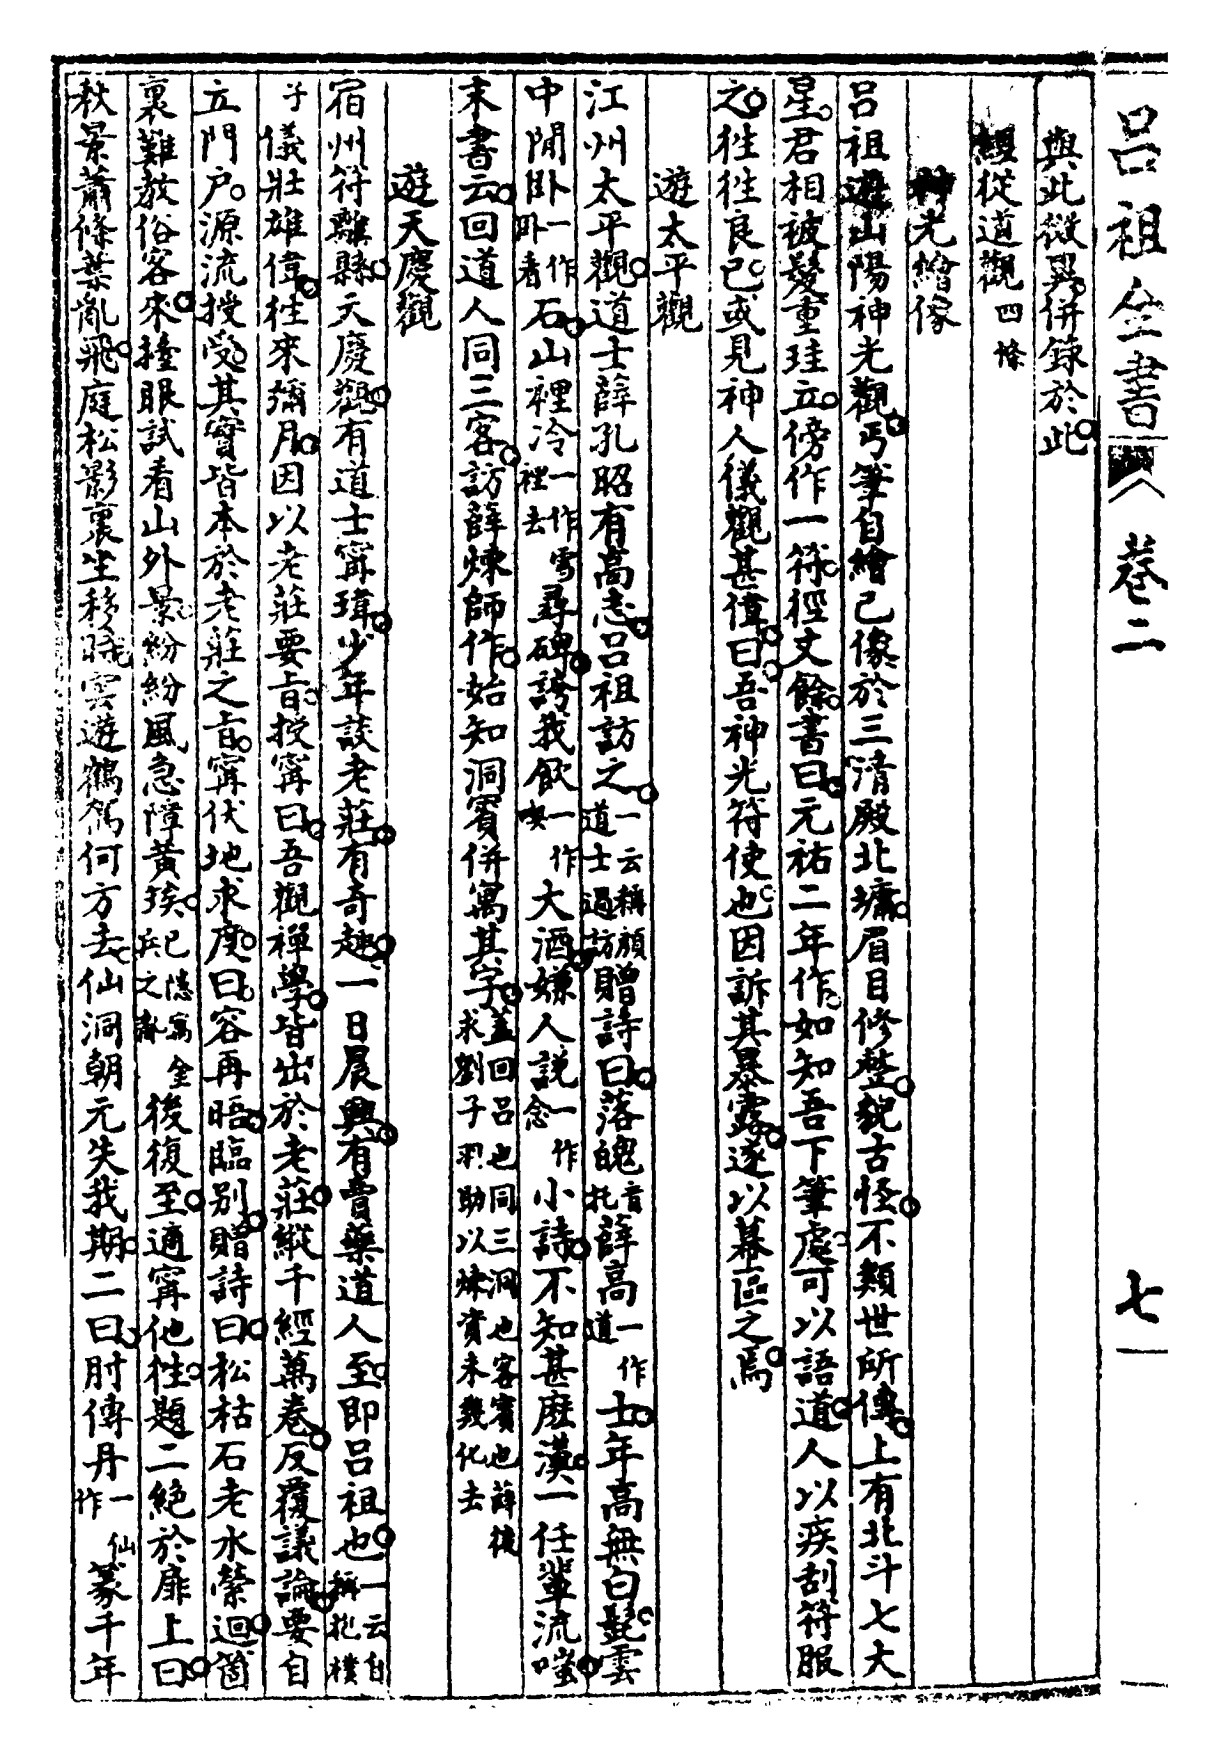 呂祖全書 卷二 七
與此微異併錄於此
經從道觀四條
神光繪像
呂祖遊山陽神光觀丐筆自繪己像於三清殿北墉眉目修整貌古怪不類世所傳上有北斗七大
星君相被髮重珪立傍作一符徑丈餘書曰元祐二年作如知吾下筆處可以語道人以疾刮符服
之往往良已或見神人儀觀甚偉曰吾神光符使也因訴其暴露遂以幕區之焉
遊太平觀
江州太平觀道士薛孔昭有高志呂祖訪之一云稱顛道士過訪贈詩曰落魄音托薛高一作道士年高無白髭雲
中閒卧一作卧看石山裡冷一作雪裡去尋碑誇我飲一作喫大酒嫌人說一作念小詩不知甚麼漢一任輩流嗤
末書云回道人同三客訪薛煉師作始知洞賓併寓其字蓋回呂也同三洞也客賓也薛後求劉子羽助以煉資未幾化去
遊天慶觀
宿州符離縣天慶觀有道士甯瑋少年談老莊有奇趣一日晨興有賣藥道人至即呂祖也一云自稱抱樸
子儀壯雄偉往來彌月因以老莊要旨授甯曰吾觀禪學皆出於老莊縱千經萬卷反覆議論要自
立門戶源流授受其實皆本於老莊之旨甯伏地求度曰容再晤臨別贈詩曰松枯石老水縈迴箇
裏難教俗客來擡眼試看山外景紛紛風急障黃埃已隱寓金兵之讖後復至適甯他往題二絕於扉上曰
秋景蕭條葉亂飛庭松影裏坐移時雲遊鶴駕何方去仙洞朝元失我期二曰肘傳丹一作仙篆千年